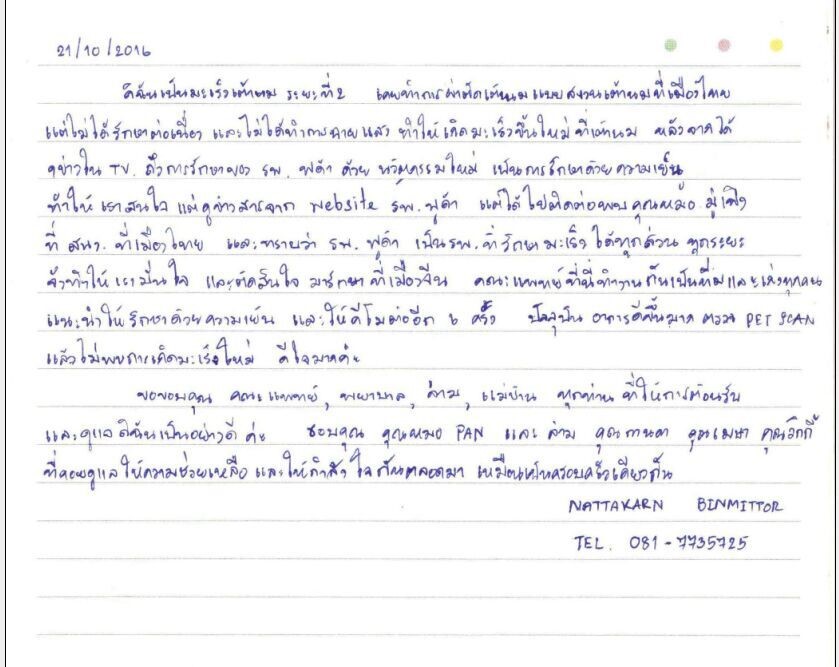 21/10/2016
ดิฉันเป็นมะเร็งเต้านม ระยะที่2 เคยทำการผ่าตัดเต้านมแบบสงวนเต้านมที่เมืองไทย
แต่ไม่ได้รักษาต่อเนื่อง และไม่ได้ทำการฉายแสง ทำให้เกิดมะเร็งขึ้นใหม่ที่เต้านม หลังจากได้
ดูข่าวใน TV. ถึงการรักษาของ รพ. ฟูด้า ด้วย นวัตกรรมใหม่ เป็นการรักษาด้วยความเย็น
ทำให้เราสนใจ และดูข่าวสารจาก website รพ. ฟูด้า และได้ไปติดต่อพบคุณหมอ มู่เฟิง
ที่ สนง. ที่เมืองไทย และทราบว่า รพ. ฟูด้า เป็นรพ. ที่รักษามะเร็งได้ทุกส่วน ทุกระยะ
จึงทำให้เรามั่นใจ และตัดสินใจ มารักษาที่เมืองจีน คณะแพทย์ที่นี่ทำงานกันเป็นทีมและเก่งทุกคน
แนะนำให้รักษาด้วยความเย็น และให้คีโมต่ออีก 6 ครั้ง ปัจจุบัน อาการดีขึ้นมาก ตรวจ PET SCAN
แล้วไม่พบการเกิดมะเร็งใหม่ ดีใจมากค่ะ
ขอขอบคุณ คณะแพทย์, พยาบาล, ล่าม, แม่บ้าน ทุกท่าน ที่ให้การต้อนรับ
และดูแลดิฉันเป็นอย่างดี ค่ะ ขอบคุณ คุณหมอ PAN และ ล่าม คุณกานดา คุณเมษา คุณวิกกี้
ที่คอยดูแลให้ความช่วยเหลือ และให้กำลังใจกันตลอดมา เหมือนเป็นครอบครัวเดียวกัน
NATTAKARN BINMITTOR
TEL. 081-7735725